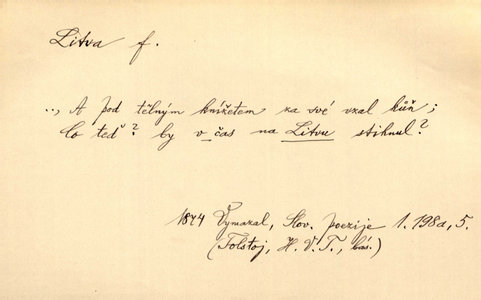 Litva f.
.., A pod tělným knížetem za své vzal kůň;
Co teď? by v čas na Litvu stihnul?
1874 Vymazal, Slov. poezije 1.198a,5.
(Tolstoj, H. V. T., bás.)